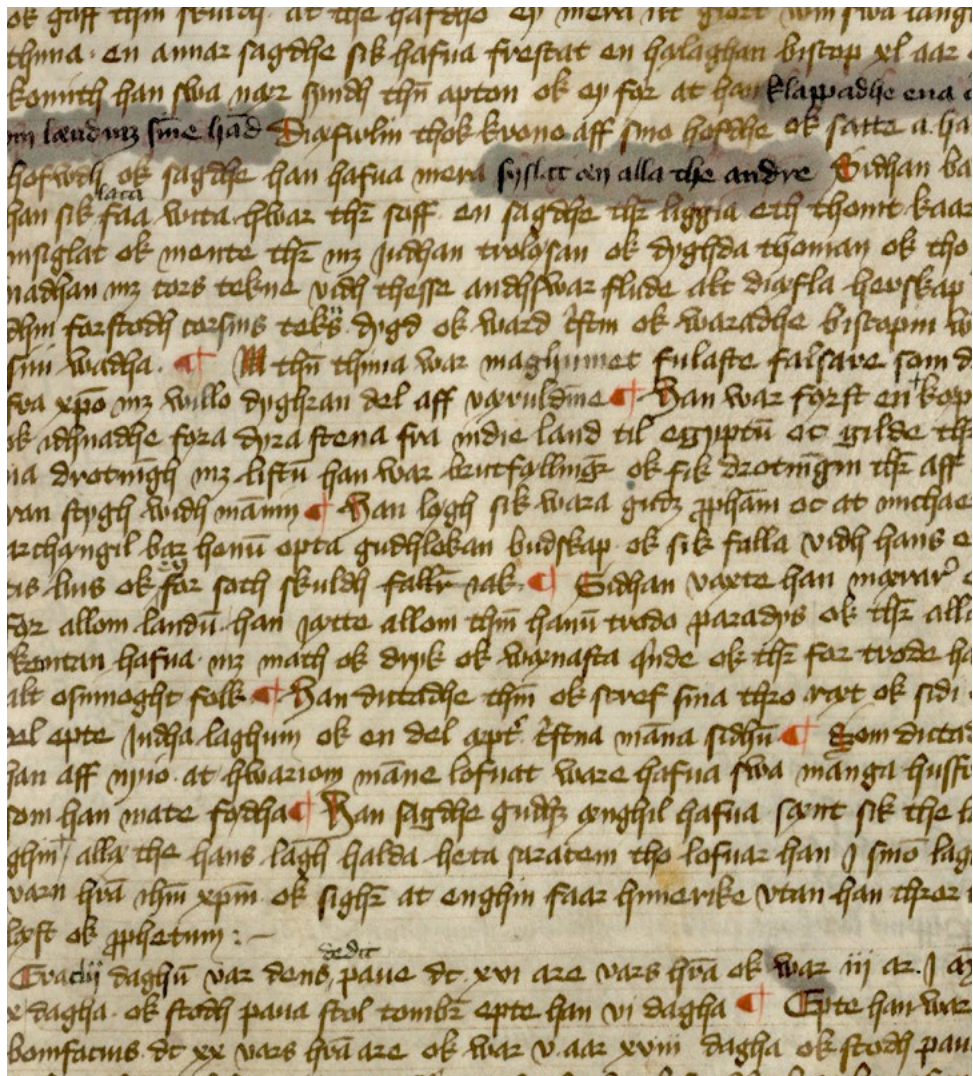 ok gaff thm skulth at the hafdho ey mera swa lang
thima · en annar sagdhe sik hafua frestat en hælaghan biscop xl aar
komith han swa nær syndh thn apton ok ey før at han klappadhe ena
mz sine hād Diæfwlin thok krono aff sino hofdhe ok satte a ha
hofwdh ok sagdhe han hafua mera syslat æn alla the andre Sidhan ba
lata
han sik faa wita hwar thr satt en sagdhe thr liggia eth thomt kaar
insiglat ok mente thr mz judhan troløsan ok dyghda thoman ok tho
nadhan mz cors tekne vidh thesse andhswar flude alt diæfla herskap
dhin forstodh corsins tekns dygd ok ward c̄stin ok waradhe biscopin
sin wadha · ¶ thn thima war maghumet fulaste falsare som d
wa xpo mz willo dyghran del aff væruldine ¶ Han war først en køp
ok adhnadhe føra dyra stena fra indie land til egyptū oc gilde thr
na drotnīgh mz listū han war brutfælling ok fik drotnīgin thr aff
ran stygh widh mānin ¶ Han løgh sik wara gudz ꝓphām oc at michae
archangil bar honū opta gudhlokan budskap ok sik falla vidh hans
tis lius ok ey før soth skuldh fallr jak ¶ Sidhan væxte han mærar
før allom landū han jætte allom thm hanū trodo paradys ok thr all
komtan hafua mz math ok dryk ok wænasta qnde ok thr for trode ha
alt osmioght folk ¶ Han dictadhe thm ok scref sina thro ræt ok sidi
el epte Judha laghum ok en del æpt c̄stna māna sidhū ¶ Som dicta
han aff nyio at hwariom māne lofuat ware hafua swa mānga husf
om han mate fødha ¶ Han sagdhe gudz ænghil hafua sænt sik the
ghin alla the hans lagh halda heta saracem tho lofuar han J sino lag
varn hrā ihm xpm ok sighr at enghin faar himerike vtan han thror
læst ok ꝓphetum : –
dedit
Era daghū var dens pave dc xvi are vars hrā ok war iij ar · J
x dagha · ok stodh pava stol tombr epte han vi dagha ¶ Epte han war
bonifacius dc xx vars hrā are ok war v aar xviii dagha ok stodh pau